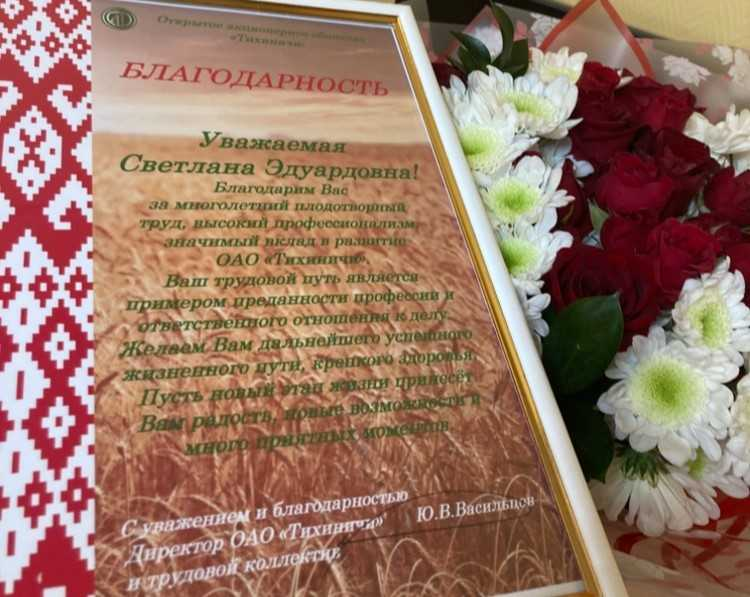 Открытое акционерное общество
«Тихиничи»
БЛАГОДАРНОСТЬ
Уважаемая
Светлана Эдуардовна!
Благодарим Вас
за многолетний плодотворный
труд, высокий профессионализм,
значимый вклад в развитие
ОАО «Тихиничи».
Ваш трудовой путь является
примером преданности профессии и
ответственного отношения к делу.
Желаем Вам дальнейшего успешного
жизненного пути, крепкого здоровья.
Пусть новый этап жизни принесёт
Вам радость, новые возможности и
много приятных моментов.
С уважением и благодарностью
Директор ОАО «Тихиничи» Ю.В.Васильцов
и трудовой коллектив